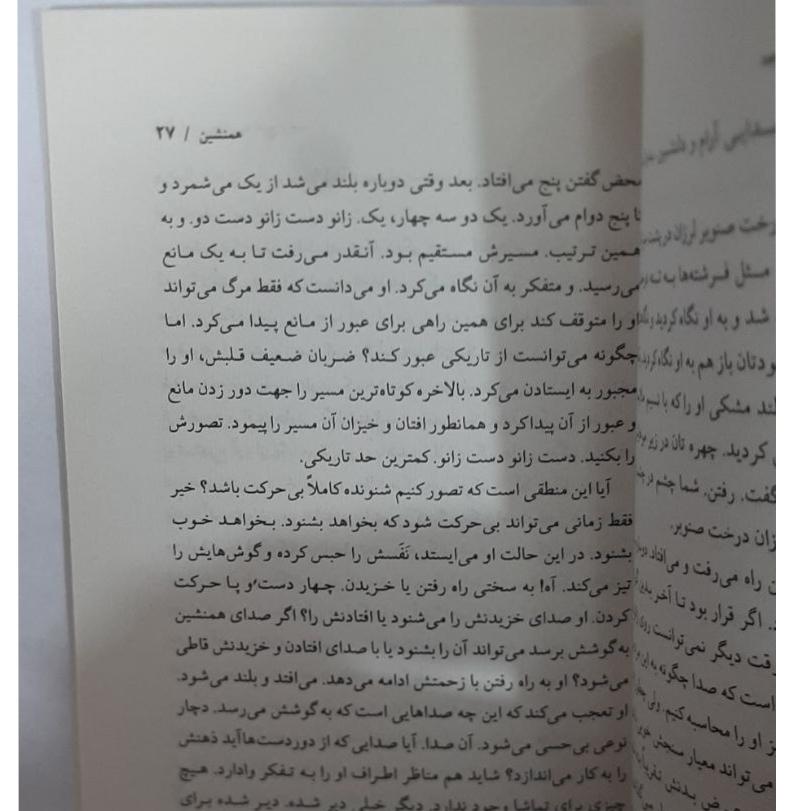 همنشین / ۲۷
محض گفتن پنج می‌افتاد. بعد وقتی دوباره بلند می‌شد از یک می‌شمرد و
تا پنج دوام می‌آورد. یک دو سه چهار، یک. زانو دست زانو دست دو. و به
همین ترتیب. مسیرش مستقیم بود. آنقدر می‌رفت تا به یک مانع
می‌رسید. و متفکر به آن نگاه می‌کرد. او می‌دانست که فقط مرگ می‌تواند
او را متوقف کند برای همین راهی برای عبور از مانع پیدا می‌کرد. اما
چگونه می‌توانست از تاریکی عبور کند؟ ضربان ضعیف قلبش، او را
مجبور به ایستادن می‌کرد. بالاخره کوتاه‌ترین مسیر را جهت دور زدن مانع
و عبور از آن پیدا کرد و همانطور افتان و خیزان آن مسیر را پیمود. تصورش
را بکنید. دست زانو دست زانو. کمترین حد تاریکی.
آیا این منطقی است که تصور کنیم شنونده کاملاً بی‌حرکت باشد؟ خیر
فقط زمانی می‌تواند بی‌حرکت شود که بخواهد بشنود. بخواهد خوب
بشنود. در این حالت او می‌ایستد، نَفَسش را حبس کرده و گوش‌هایش را
تیز می‌کند. آه! به سختی راه رفتن یا خزیدن. چهار دست و پا حرکت
کردن. او صدای خزیدنش را می‌شنود یا افتادنش را؟ اگر صدای همنشین
به گوشش برسد می‌تواند آن را بشنود یا با صدای افتادن و خزیدنش قاطی
می‌شود؟ او به راه رفتن با زحمتش ادامه می‌دهد. می‌افتد و بلند می‌شود.
او تعجب می‌کند که این چه صداهایی است که به گوشش می‌رسد. دچار
نوعی بی‌حسی می‌شود. آن صدا. آیا صدایی که از دوردست‌ها آید ذهنش
را به کار می‌اندازد؟ شاید هم مناظر اطراف او را به تفکر وادارد. هیچ
چیزی برای تماشا وجود ندارد. دیگر خیلی دیر شده. دیر شده برای
آرام و دلنشین
درخت صنوبر لرزان در
مثل فرشته‌ها به
شد و به او نگاه کردید و
خودتان باز هم به او نگاه کردید
بلند مشکی او را که با نسیم
کردید. چهره تان در زیر
گفت. رفتن. شما چشم در
لرزان درخت صنوبر.
راه می‌رفت و می‌افتاد
اگر قرار بود تا آخر
وقت دیگر نمی‌توانست روی
است که صدا چگونه به این
او را محاسبه کنیم. ولی
می‌تواند معیار سنجش
بدنش تقریباً